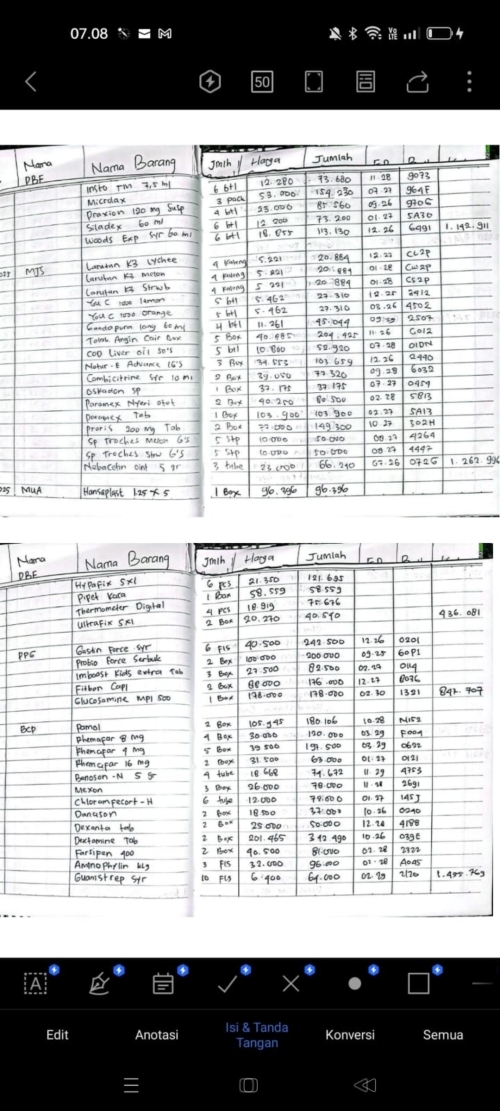 07.08
Nama PBF Nama Barang Jmlh Harga Jumlah
Insto TM 7,5 ml 6 btl 12.280 73.680 11.28 9073
Microlax 3 pack 53.000 154.230 07.27 964F
Praxion 120 mg Susp 4 btl 23.000 85.560 09.26 970G
Siladex 60 ml 6 btl 12.200 73.200 01.27 5A30
Woods Exp Syr 60 ml 6 btl 18.855 113.130 12.26 6491 1.142.911
MJS Larutan K3 Lychee 4 Kaleng 5.221 20.884 12.27 CL2P
Larutan K3 Melon 4 Kaleng 5.221 20.884 01.28 CW2P
Larutan K3 Strwb 4 Kaleng 5.221 20.884 01.28 CS2P
You C 1000 lemon 5 btl 5.462 27.310 12.25 2412
You C 1000 Orange 5 btl 5.462 27.310 03.26 4502
Gandapura 60 ml 4 btl 11.261 45.044 2507
Tolak Angin Cair Box 5 Box 40.885 204.425 11.26 G012
COD Liver Oil 30's 5 btl 10.800 52.920 07.28 01DN
Natur-E Advance 16's 3 Box 34.553 103.659 12.26 2440
Combicitrine Syr 10 ml 2 Box 72.320 09.28 6032
Oskadon SP 1 Box 37.175 37.175 07.27 0454
Paramex Nyeri otot 2 Box 40.250 80.500 02.28 5813
Paramex Tab 1 Box 103.900 103.900 02.27 5A13
Proris 200 mg Tab 2 Box 77.000 149.300 10.27 302H
SP Troches Melon 6'S 5 Stp 10.000 50.000 08.27 4264
SP Troches Stbw 6'S 5 Stp 10.000 50.000 08.27 4447
Nebacetin oint 5 gr 3 tube 23.000 66.240 07.26 072G
MUA Hansaplast 1.25 x 5 1 Box 96.396 96.396
Nama PBF Nama Barang Jmlh Harga Jumlah
Hypafix 5x1 6 pcs 21.350 121.695
Pipet Kaca 1 Box 58.559 58.559
Thermometer Digital 4 pcs 18.919 75.676
Ultrafix 5x1 2 Box 20.270 40.540 436.081
PPG Gastin Force Syr 6 Fls 40.500 242.500 12.26 0201
Probio Force Serbuk 2 Box 100.000 200.000 09.25 60P1
Imboost Kids extra Tab 3 Box 27.500 82.500 02.27 0114
2 Box 88.000 176.000 12.27 8036
Glucosamine MPL 500 1 Box 178.000 178.000 02.30 1321 847.707
BCP Pamol 2 Box 105.945 180.106 10.28 N152
Phemafar 8 mg 4 Box 30.000 120.000 03.29 F004
Phemafar 4 mg 5 Box 39.500 191.500 03.29 0622
Phemafar 16 mg 2 Box 31.500 63.000 01.27 0121
Benoson-N 5 gr 4 tube 18.668 74.672 11.29 4753
Mexon 3 Box 26.000 78.000 11.28 2691
Chloramfecort-H 6 tube 12.000 72.000 01.27 145J
Danason 2 Box 18.500 37.000 10.26 0240
Dexanta tab 2 Box 25.000 50.000 12.28 4188
Dextamine Tab 2 Box 201.465 342.490 10.26 039E
Farsifen 400 2 Box 40.500 81.000 02.28 2322
Aminophylin klg 3 Fls 32.000 96.000 01.28 A045
Guanistrep Syr 10 Fls 6.400 64.000 02.29 2120
Edit
Anotasi
Isi & Tanda Tangan
Konversi
Semua